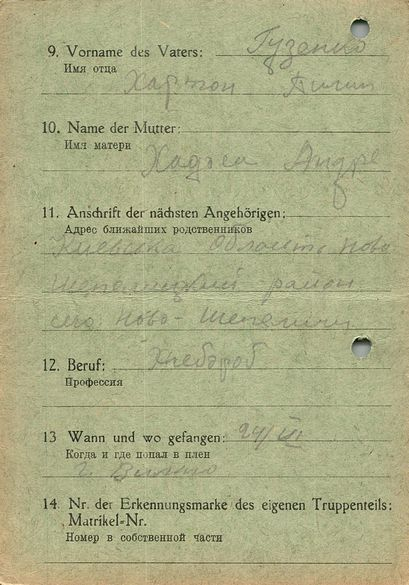 9. Vorname des Vaters: Гузенко
Имя отца
Харитон
10. Name der Mutter:
Имя матери
Андре
11. Anschrift der nächsten Angehörigen:
Адрес ближайших родственников
Киевська Область Ново
Шепелицкий район
село Ново-Шепеличи
12. Beruf: Хлебороб
Профессия
13 Wann und wo gefangen: 24/VI
Когда и где попал в плен
г. Вильно
14. Nr. der Erkennungsmarke des eigenen Truppenteils:
Matrikel-Nr.
Номер в собственной части